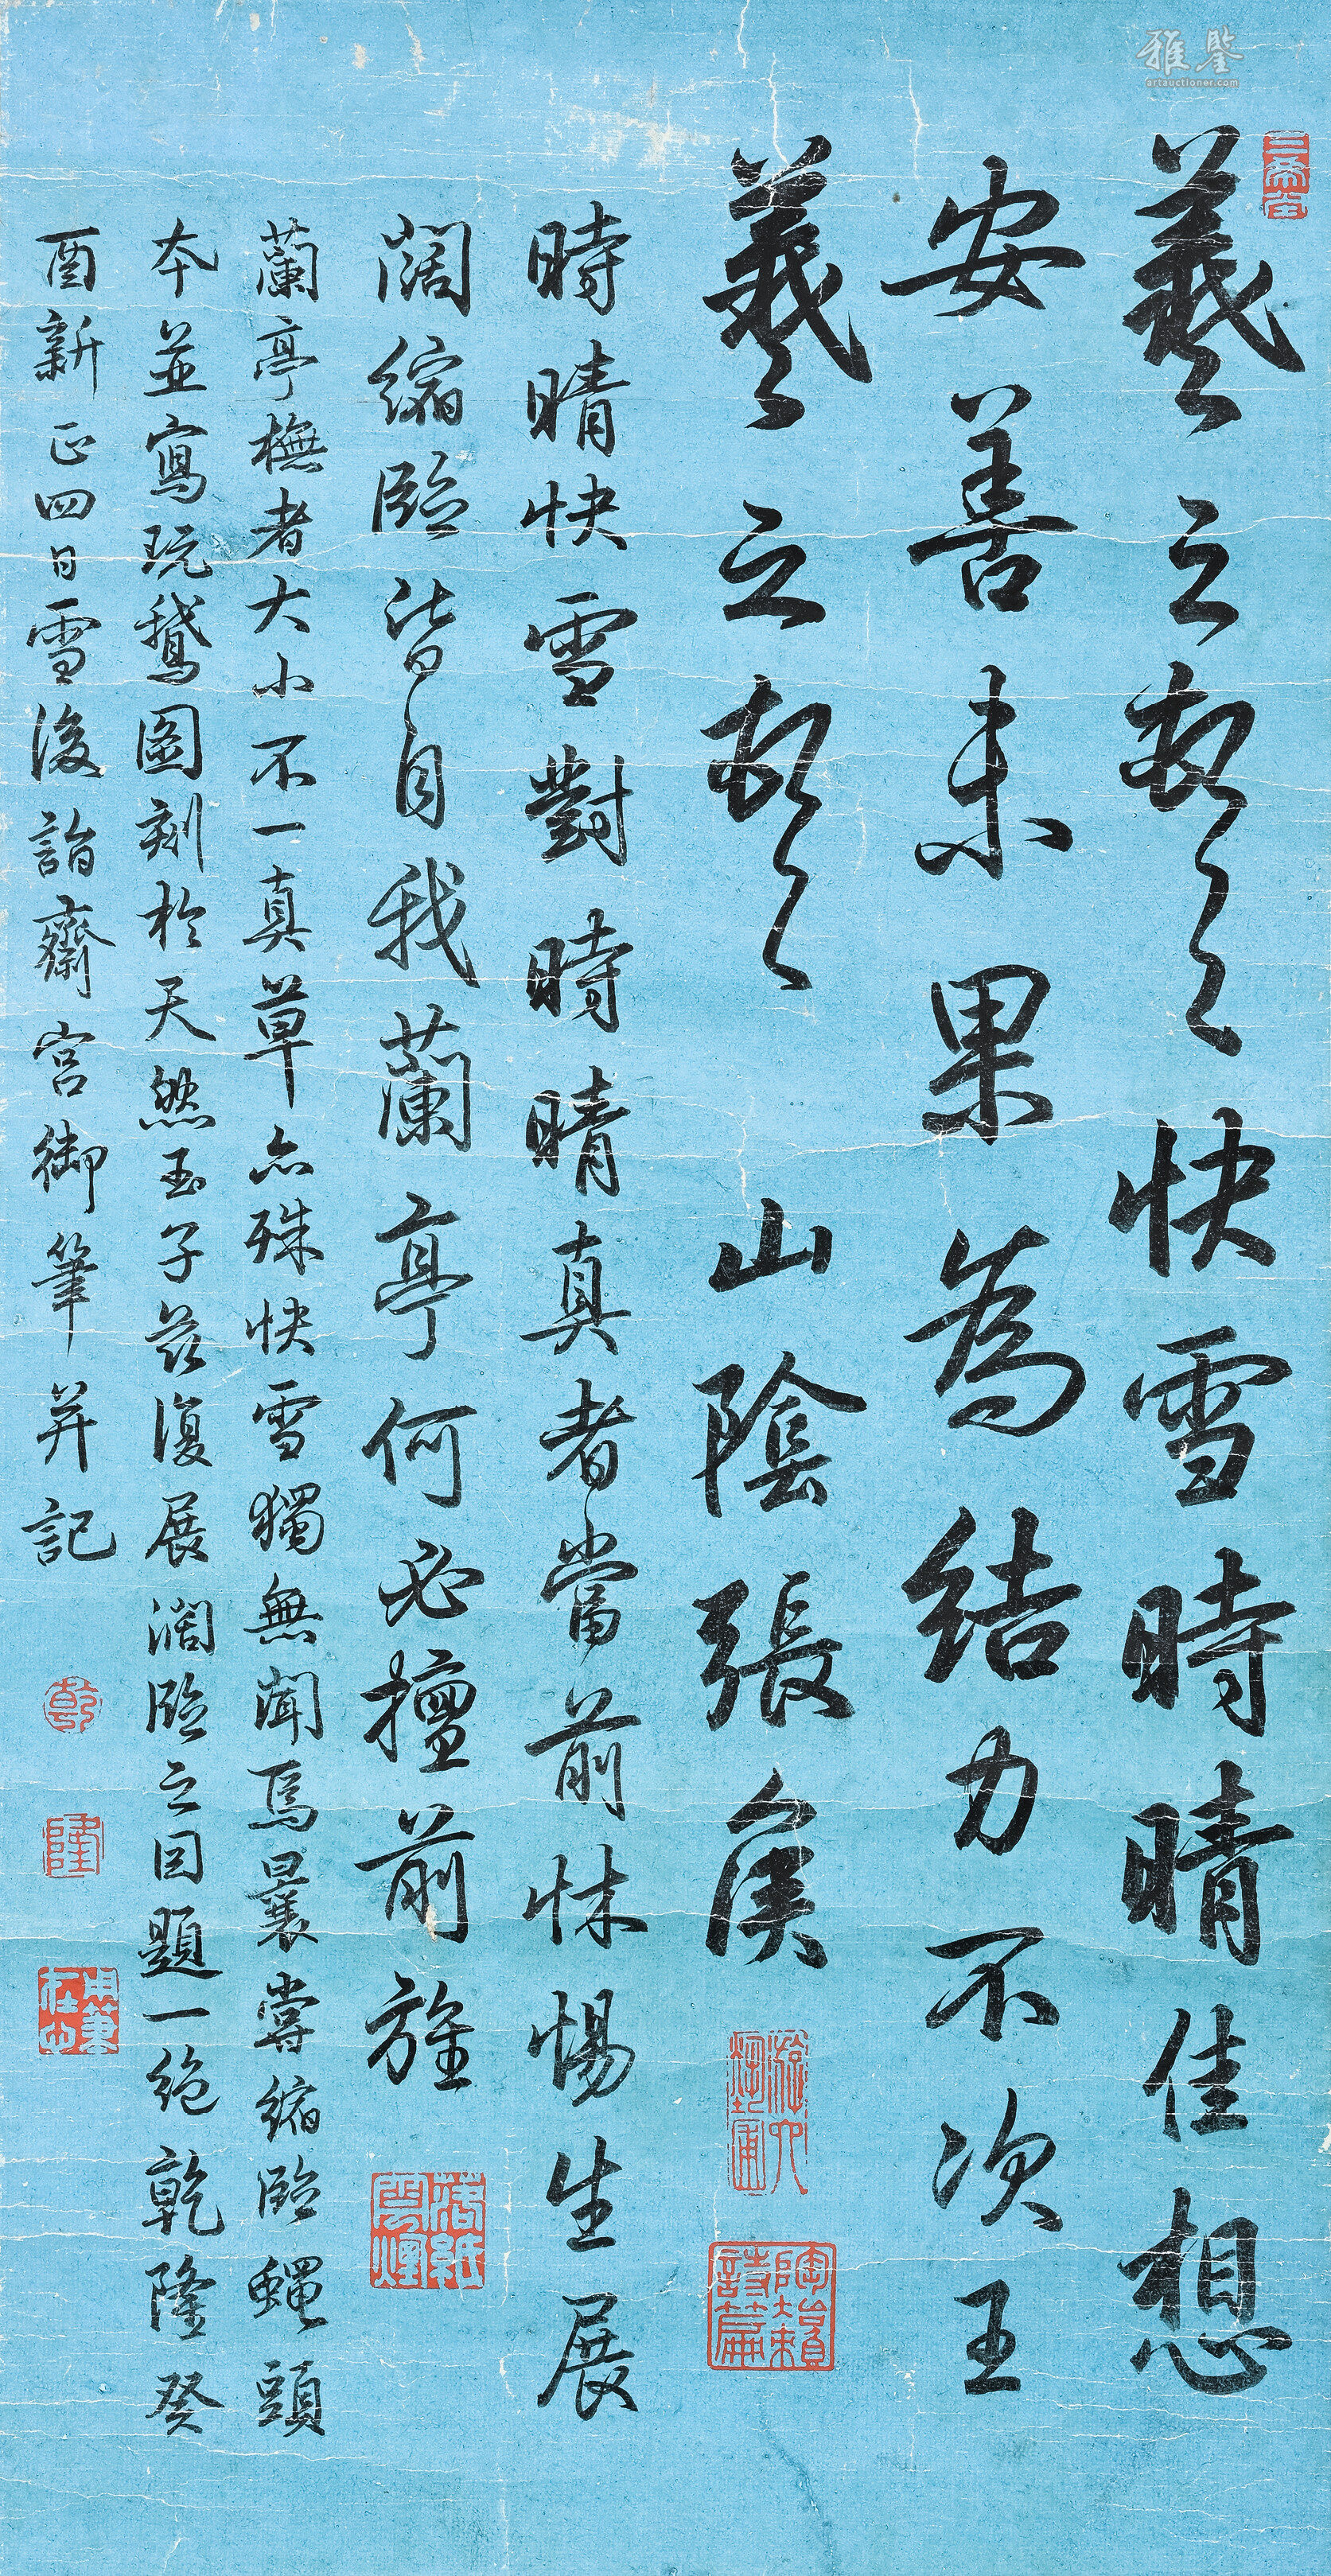 羲之頓首快雪時晴佳想
安善未果為結力不次王
羲之頓首 山陰張侯
時晴快雪對時晴真者當前怵惕生展
闊縮臨皆自我蘭亭何必擅前旌
蘭亭橅者大小不一真草亦殊快雪獨無聞焉曩嘗縮臨蠅頭
本並寫玩鵝圖刻於天然玉子茲復展濶臨之因題一絕乾隆癸
酉新正四日雪後詣齋宮御筆並記
三希堂
陶賴詩篇
落紙雲煙
乾
隆
用筆在心
雅鑒
artauctioner.com